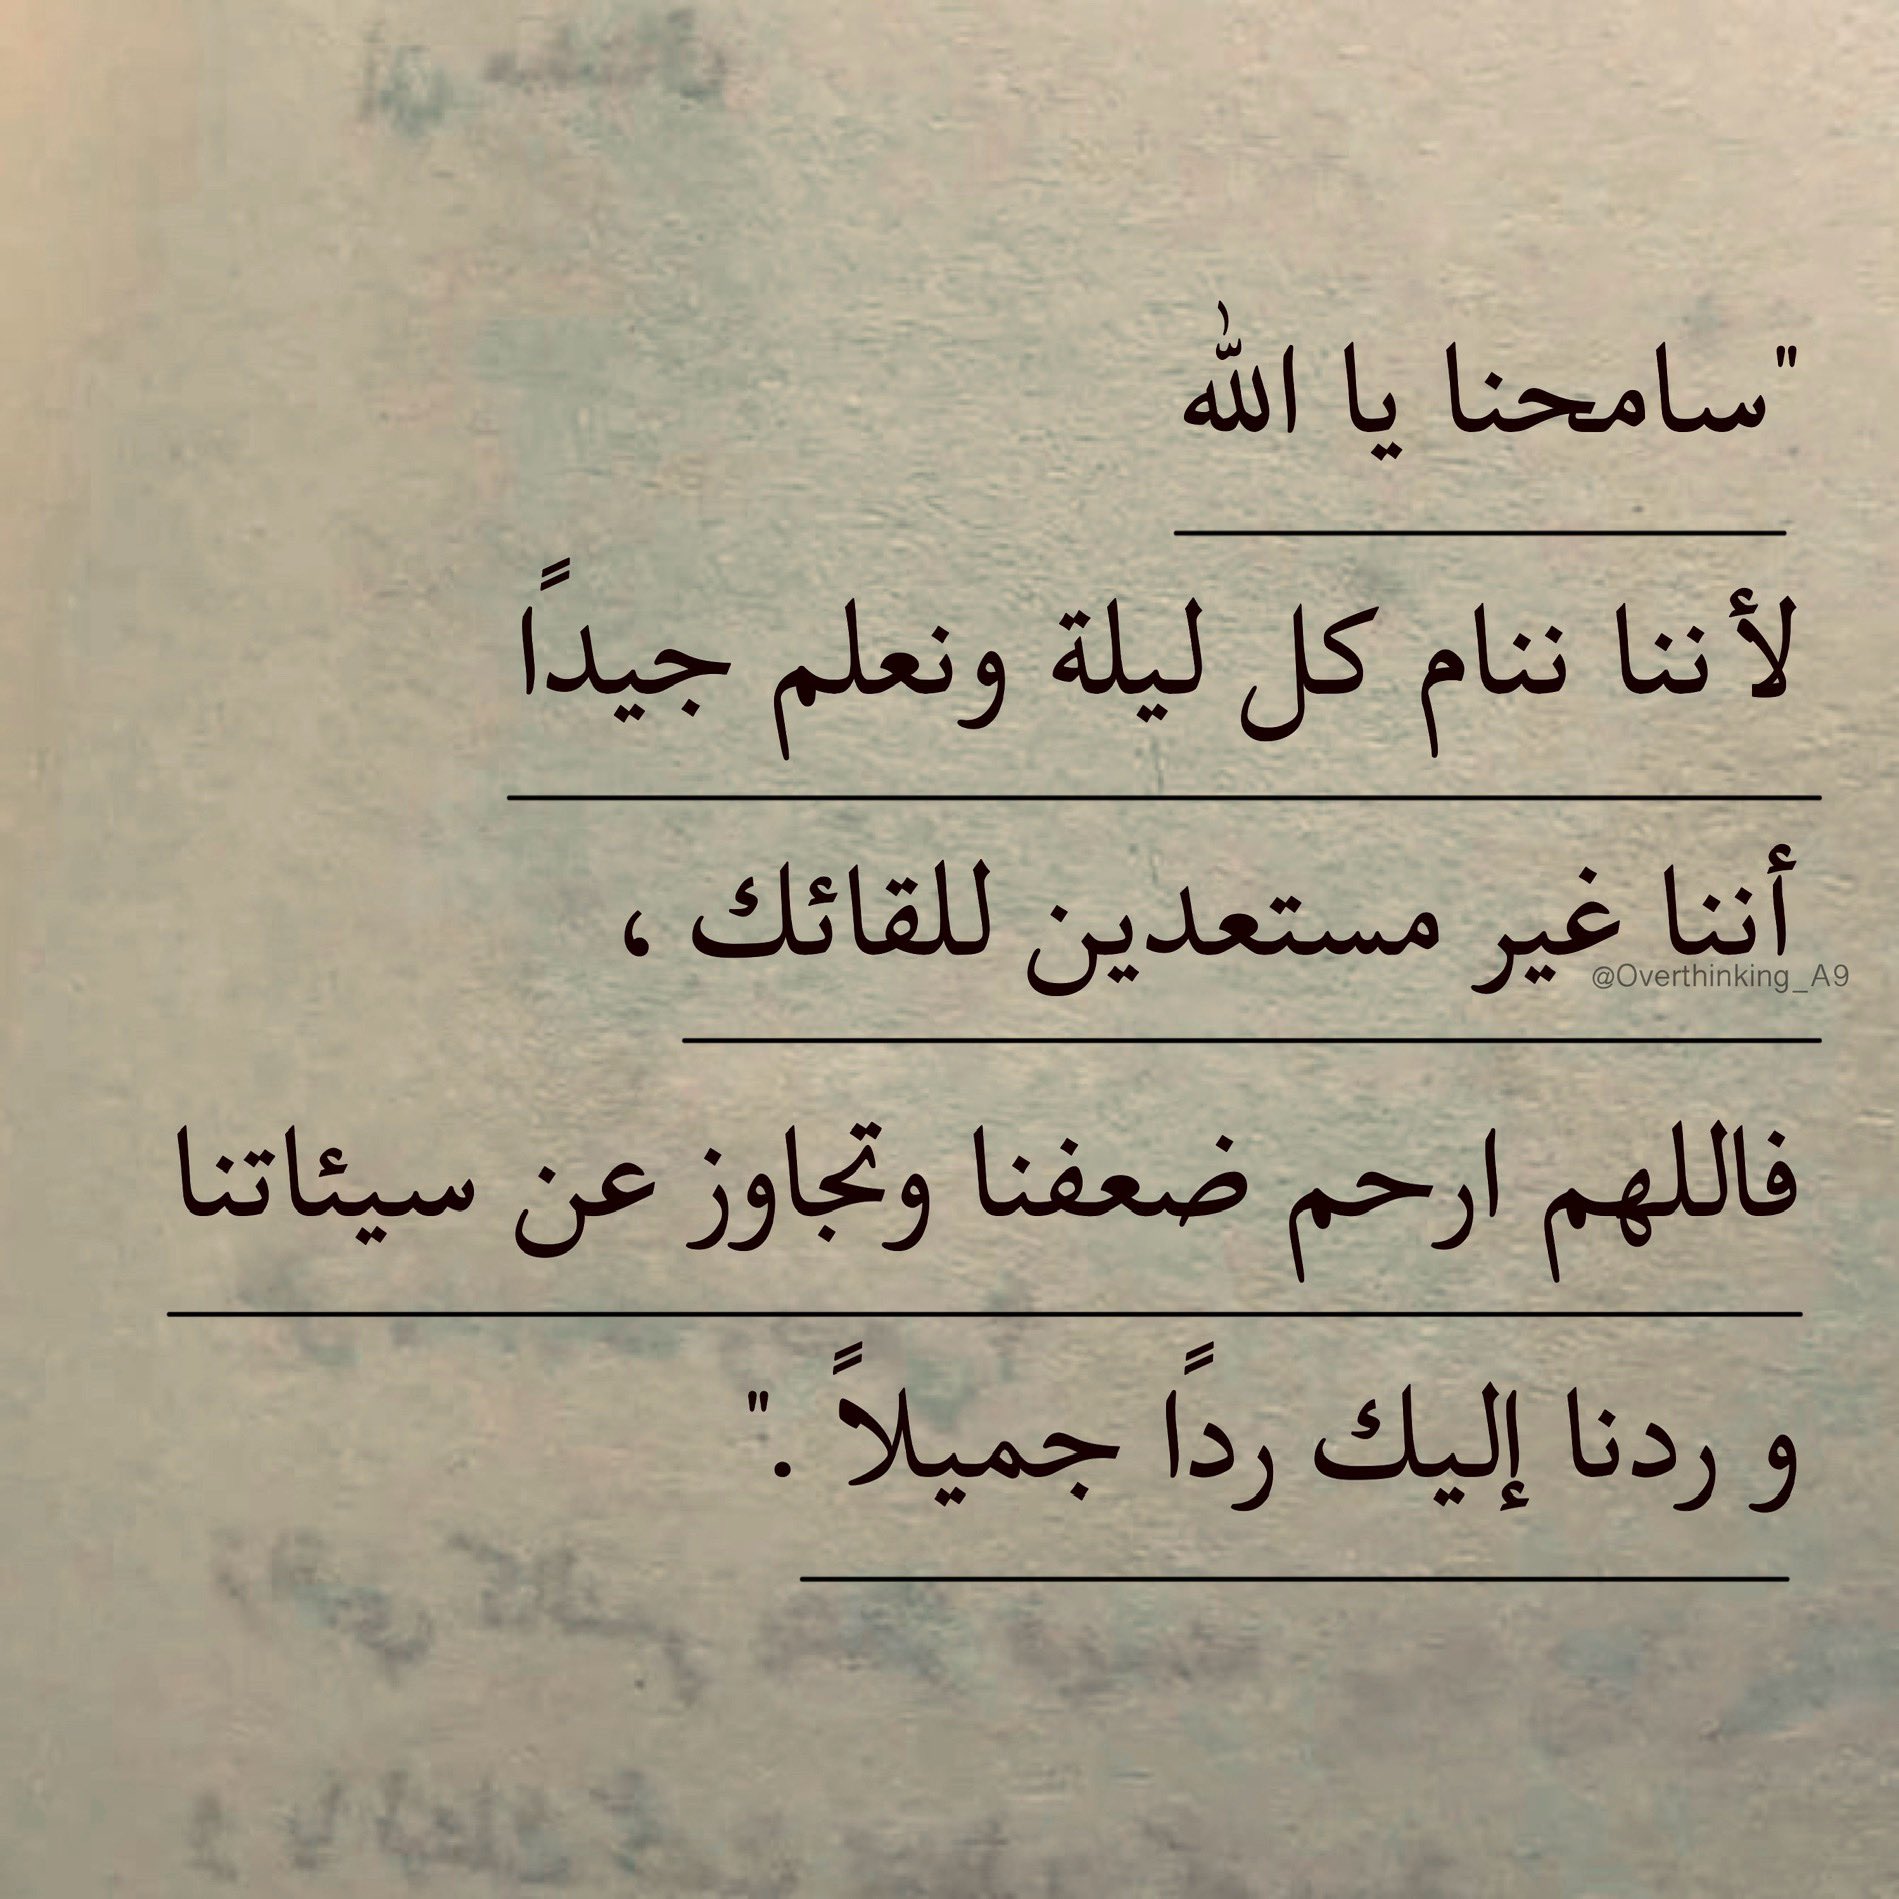 "سامحنا يا اللّٰه
لأننا ننام كل ليلة ونعلم جيداً
أننا غير مستعدين للقائك ،
@Overthinking_A9
فاللهم ارحم ضعفنا وتجاوز عن سيئاتنا
و ردنا إليك رداً جميلاً ."